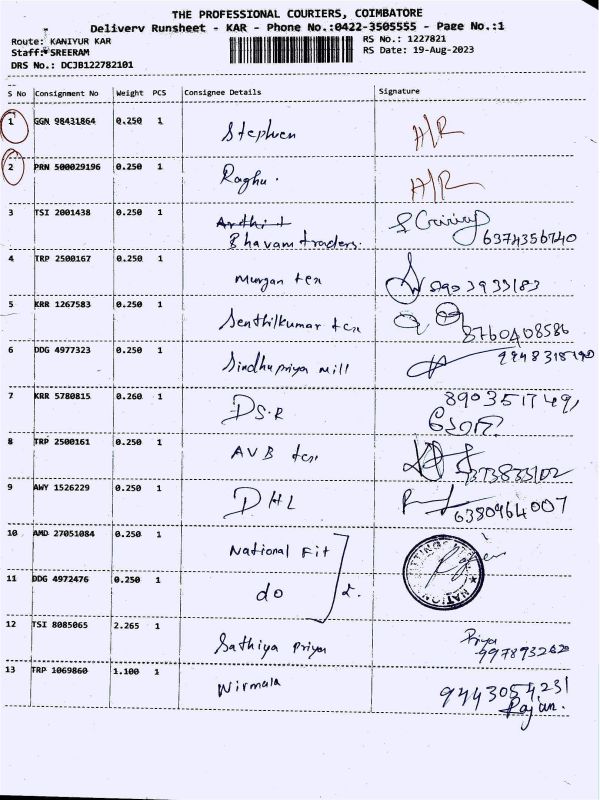 THE PROFESSIONAL COURIERS, COIMBATORE
Delivery Runsheet - KAR - Phone No.:0422-3505555 - Page No.:1
Route: KANIYUR KAR
RS No.: 1227821
Staff: SREERAM
RS Date: 19-Aug-2023
DRS No.: DCJB122782101
S No Consignment No Weight PCS Consignee Details Signature
1 GGN 98431864 0.250 1 Stephen A/R
2 PRN 500029196 0.250 1 Raghu. A/R
3 TSI 2001438 0.250 1 Arthi t
Bhavam traders. 6374356740
4 TRP 2500167 0.250 1 Murgan tex
5 KRR 1267583 0.250 1 Senthilkumar tex 8760408586
6 DDG 4977323 0.250 1 Sindhupriya mill
7 KRR 5780815 0.260 1 D.S.R
8 TRP 2500161 0.250 1 AVB tex.
9 AWY 1526229 0.250 1 DHL 6380964007
10 AMD 27051084 0.250 1 National Fit
11 DDG 4972476 0.250 1 do 2.
12 TSI 8085065 2.265 1 Sathiya priya Priya
13 TRP 1069860 1.100 1 Nirmala 9443054231
Rajan.